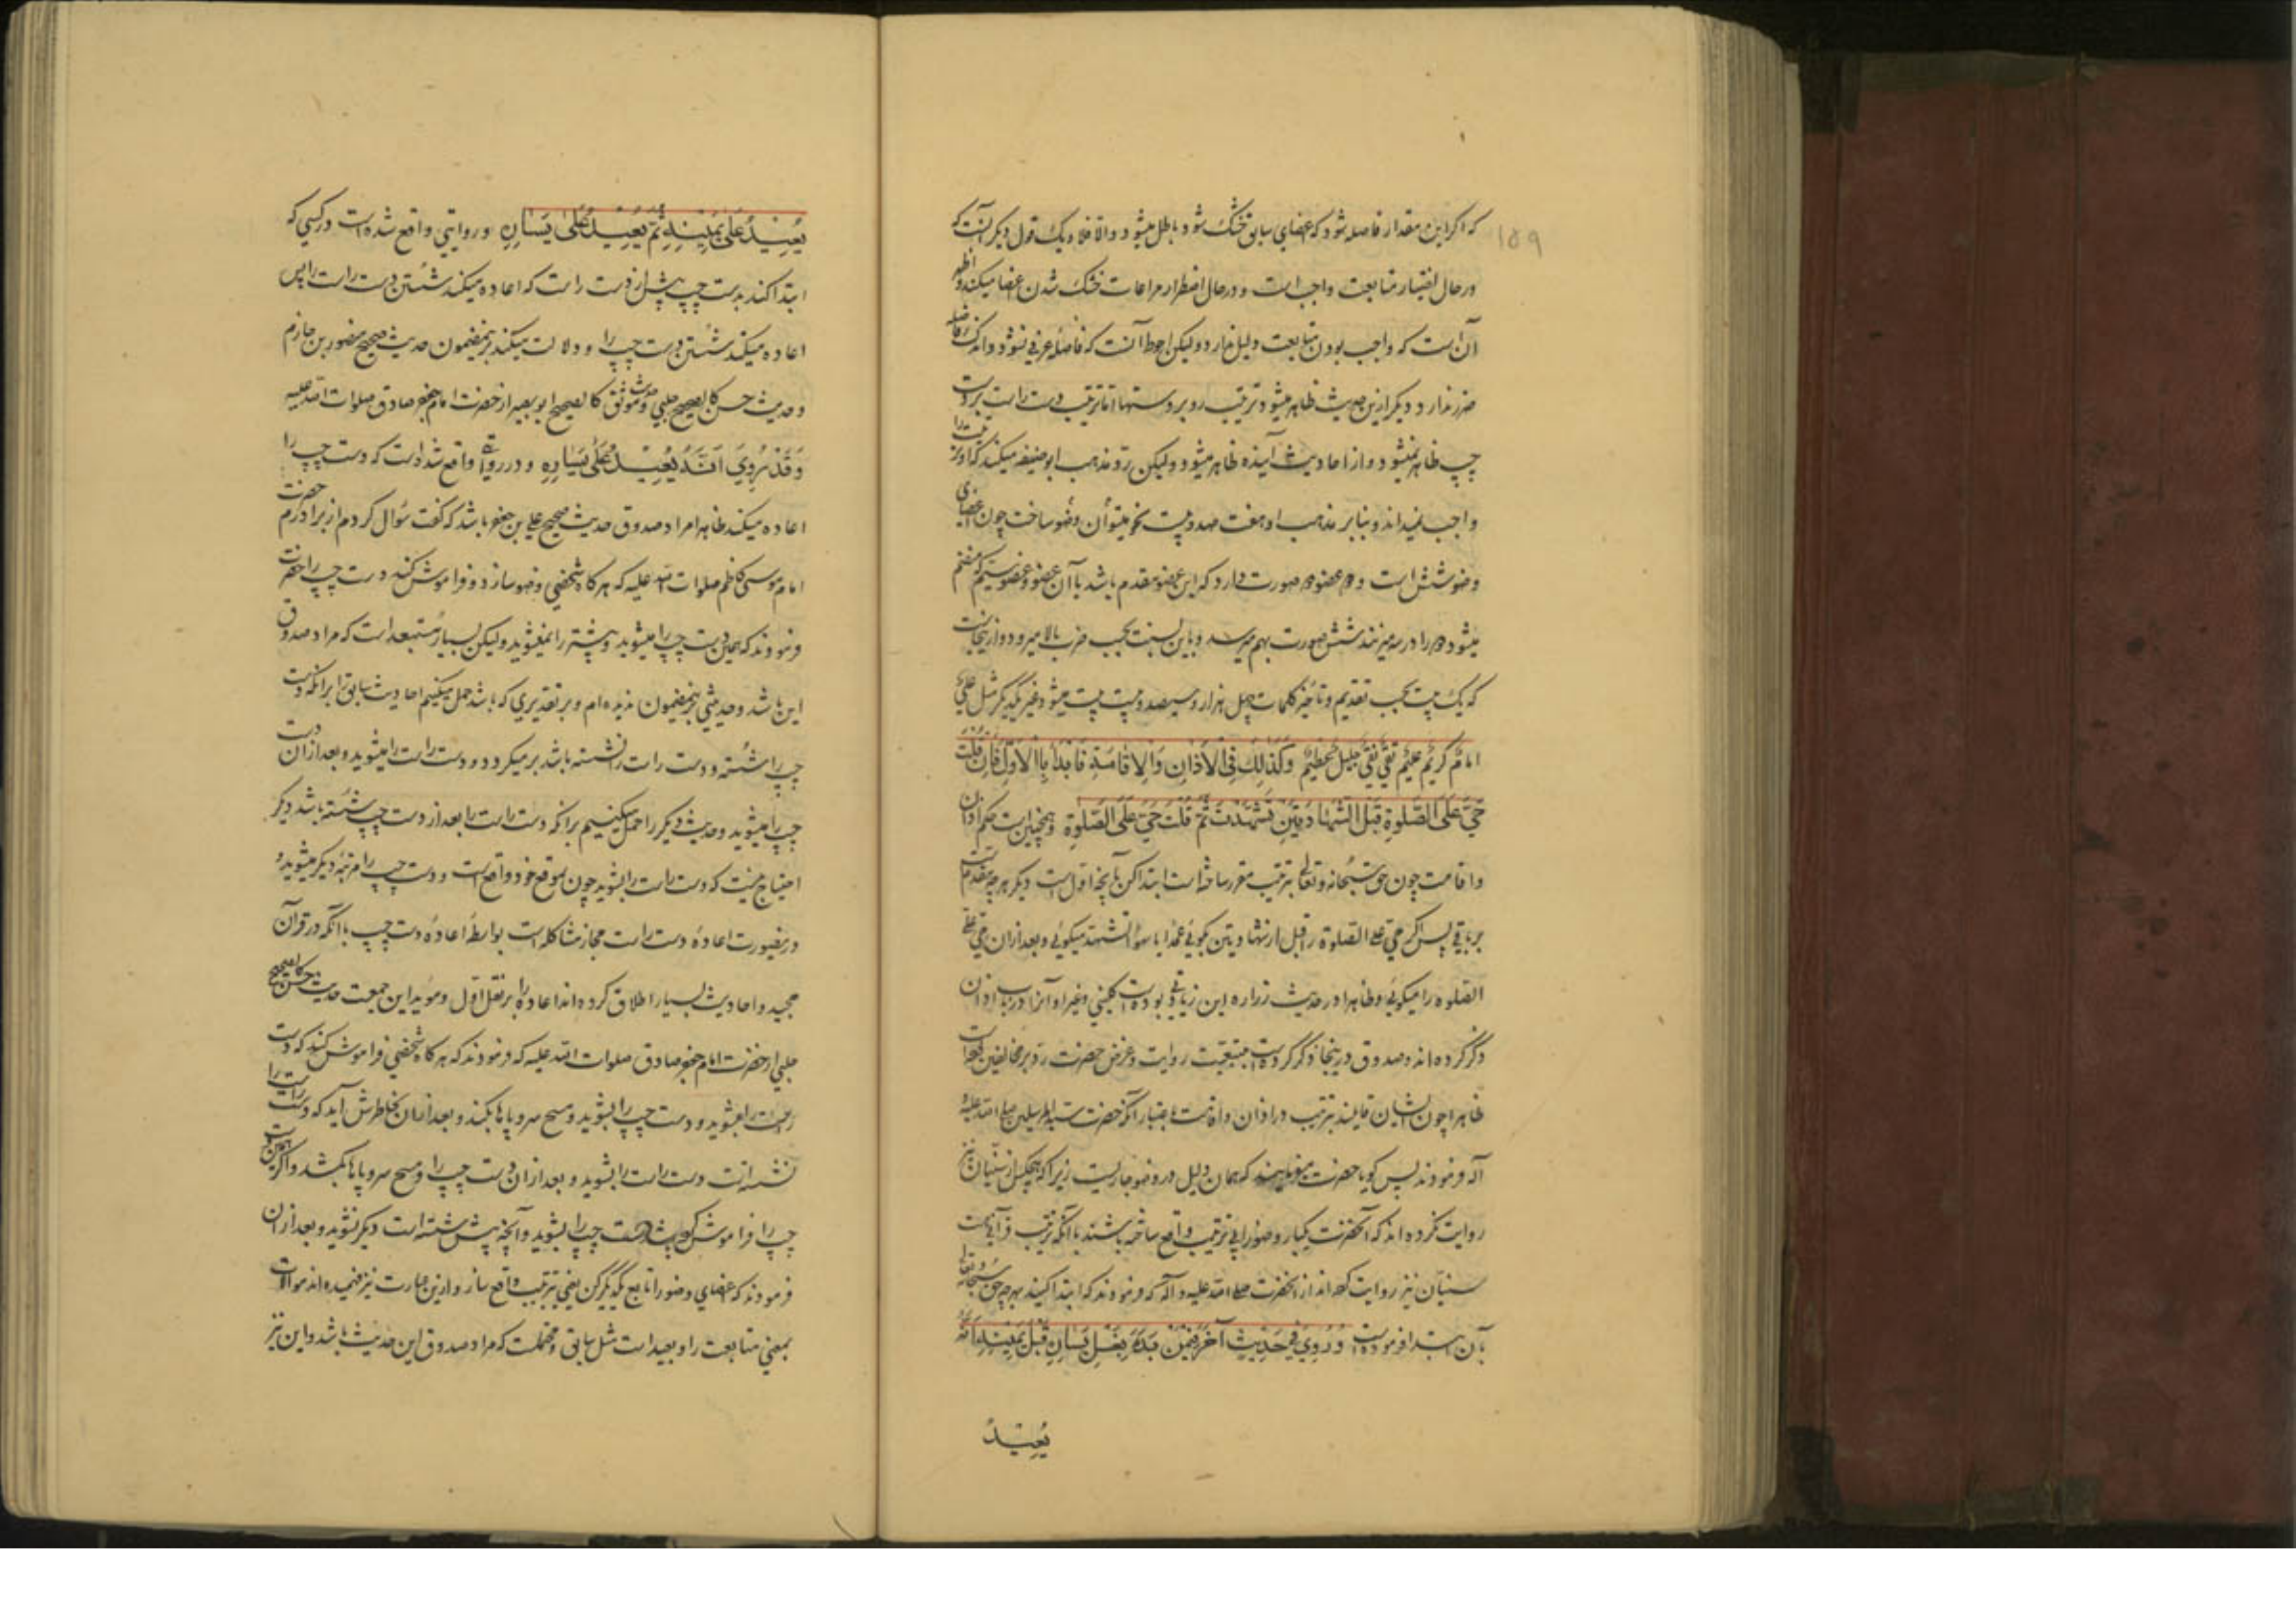 ۱۵۹
که اگر این مقدار فاصله شود که اعضای سابق خشک شود باطل میشود والا فلا و یک قول دیگر آنست که
در حال اختیار متابعت واجب است و در حال اضطرار مراعات خشک شدن اعضا میکند و اظهر
آن است که واجب بودن متابعت دلیل ندارد و لیکن احوط آنست که فاصله عرفی نشود و اندک فاصله
ضرر ندارد و دیگر ازین حدیث ظاهر میشود ترتیب رو بر دستها اما ترتیب دست راست بر دست
چپ ظاهر نمیشود و از احادیث آینده ظاهر میشود و لیکن رد مذهب ابو حنیفه میکند که او ترتیب را
واجب نمیداند و بنابر مذهب او هفت صد و بیست نحو میتوان وضو ساخت چون اعضای
وضو شش است و دو عضو دو صورت دارد که این عضو مقدم باشد یا آن عضو و عضو سیم که منضم
میشود دو را در سه میزنند شش صورت بهم میرسد و باین نسبت بحسب ضرب بالا میرود و از اینجاست
که یک بیت بحسب تقدیم و تأخیر کلمات چهل هزار و سیصد و بیست بیت میشود غیر یکدیگر مثل علی
امام کریم علیم تقی نقی جلیل عظیم وَكَذٰلِكَ فِی الْاَذَانِ وَالْاِقَامَةِ فَابْدَأْ بِالْاَوَّلِ فَاِنْ قُلْتَ
حَیَّ عَلَی الصَّلٰوةِ قَبْلَ الشَّهَادَتَیْنِ تَشَهَّدْتَ ثُمَّ قُلْتَ حَیَّ عَلَی الصَّلٰوةِ و همچنین است حکم اذان
و اقامت چون حق سبحانه وتعالی بترتیب مقرر ساخته است ابتدا کن بآنچه اول است دیگر هر چه مقدم است
بر باقی پس اگر حی علی الصلوة را قبل از شهادتین بگوئی عمدا یا سهوا تشهد میگوئی و بعد از آن حی علی
الصلوه را میگوئی و ظاهرا در حدیث زراره این زیادتی بوده است کلینی و غیر او آنرا در باب اذان
ذکر کرده اند و صدوق در اینجا ذکر کرده است بتبعیت روایت و غرض حضرت رد بر مخالفین است
ظاهرا چون ایشان قایلند بترتیب در اذان و اقامت باعتبار آنکه حضرت سید المرسلین صلی الله علیه و
آله فرمودند پس گویا حضرت میفرمایند که همان دلیل در وضو جاریست زیرا که هیچکس از سنیان نیز
روایت نکرده اند که آنحضرت یکبار وضو را بی ترتیب واقع ساخته باشند با آنکه ترتیب قرآنی هست
سنیان نیز روایت کرده اند از آنحضرت صلی الله علیه و آله که فرمودند که ابتدا کنید بهر چه حق سبحانه وتعالی
بآن ابتدا فرموده است وَرُوِیَ فِی حَدِیْثٍ آخَرَ فِیْمَنْ بَدَءَ بِغَسْلِ یَسَارِهِ قَبْلَ یَمِیْنِهِ اَنَّهُ
یُعِیْدُ
یُعِیْدُ عَلٰی یَمِیْنِهِ ثُمَّ یُعِیْدُ عَلٰی یَسَارِهِ و روایتی واقع شده است در کسی که
ابتدا کند بدست چپ پیش از دست راست که اعاده میکند شستن دست راست را پس
اعاده میکند شستن دست چپ را و دلالت میکند بر این مضمون حدیث صحیح منصور بن حازم
و حدیث حسن کالصحیح حلبی و حدیث موثق کالصحیح ابو بصیر از حضرت امام جعفر صادق صلوات الله علیه
وَقَدْ رُوِیَ اَنَّهُ یُعِیْدُ عَلٰی یَسَارِهِ و در روایتی واقع شده است که دست چپ را
اعاده میکند ظاهرا مراد صدوق حدیث صحیح علی بن جعفر باشد که گفت سؤال کردم از برادرم حضرت
امام موسی کاظم صلوات الله علیه که هرگاه شخصی وضو سازد و فراموش کند دست چپ را حضرت
فرمودند که همین دست چپ را میشوید و پیشتر را نمیشوید و لیکن بسیار مستبعد است که مراد صدوق
این باشد و حدیثی بر این مضمون ندیده ام و بر تقدیری که باشد حمل میکنیم احادیث سابق را بر آنکه دست
چپ را شسته و دست راست را نشسته باشد بر میگردد و دست راست را میشوید و بعد از آن دست
چپ را میشوید و حدیث دیگر را حمل میکنیم بر آنکه دست راست را بعد از دست چپ شسته باشد دیگر
احتیاج نیست که دست راست را بشوید چون بموقع خود واقع است و دست چپ را مرتبه دیگر میشوید و
درینصورت اعاده دست راست مجاز مشاکله است بواسطه اعاده دست چپ با آنکه در قرآن
مجید و احادیث بسیار اطلاق کرده اند اعاده را بر نقل اول و مؤید این جمعت حدیث حسن کالصحیح
حلبی از حضرت امام جعفر صادق صلوات الله علیه که فرمودند که هرگاه شخصی فراموش کند که دست
راست را بشوید و دست چپ را بشوید و مسح سر و پاها بکند و بعد از آن بخاطرش آید که دست راست را
نشسته است دست راست را بشوید و بعد از آن دست چپ را و مسح سر و پاها بکشد و اگر همین دست
چپ را فراموش کرده باشد دست چپ را بشوید و آنچه پیش شسته است دیگر نشوید و بعد از آن
فرمودند که اعضای وضو را تابع یکدیگر کن یعنی بترتیب واقع ساز و ازین عبارت نیز فهمیده اند موالات
بمعنی متابعت را و بعید است مثل سابق و محتملست که مراد صدوق این حدیث باشد و این نیز